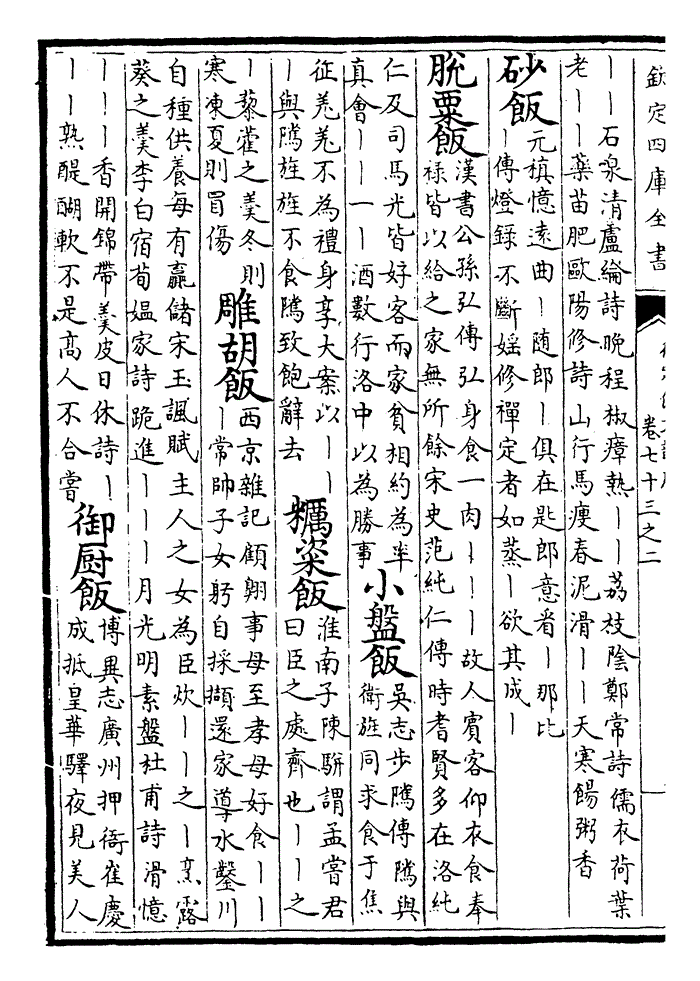 欽定四庫全書
卷七十三之二
——石泉清盧綸詩晚程椒瘴熱——荔枝陰鄭常詩儒衣荷葉
老——藥苗肥歐陽修詩山行馬瘦春泥滑——天寒餳粥香
砂飯
元稹憶遠曲—随郎—俱在匙郎意看—那比
—傳燈錄不斷婬修禪定者如蒸—欲其成—
脱粟飯
漢書公孫弘傳弘身食一肉———故人賓客仰衣食奉
禄皆以給之家無所餘宋史范純仁傳時耆賢多在洛純
仁及司馬光皆好客而家貧相約為率
真會——一—酒數行洛中以為勝事
小盤飯
吳志步隲傳隲與
衛旌同求食于焦
征羌羌不為禮身享大案以——
—與隲旌旌不食隲致飽辭去
糲粢飯
淮南子陳駢謂孟嘗君
曰臣之處齊也——之
—藜藿之羹冬則
寒凍夏則冒傷
雕胡飯
西京雜記顧翺事母至孝母好食——
—常帥子女躬自採擷還家導水鑿川
自種供養每有贏儲宋玉諷賦主人之女為臣炊——之—烹露
葵之羹李白宿荀媪家詩跪進———月光明素盤杜甫詩滑憶
———香開錦帶羹皮日休詩—
——熟醍醐軟不是高人不合嘗
御厨飯
博異志廣州押衙崔慶
成抵皇華驛夜見美人